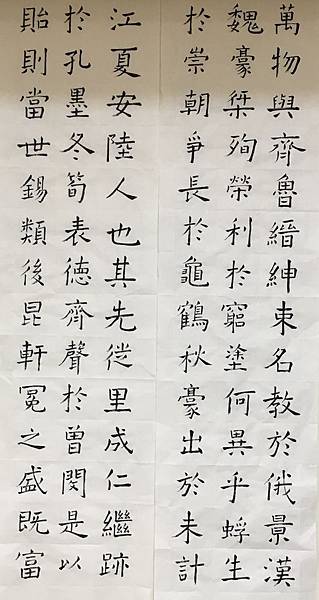 萬物與齊魯縉紳束名教於俄景漢
魏豪桀殉榮利於窮塗何異乎蜉生
於崇朝爭長於龜鶴秋豪出於未計
江夏安陸人也其先從里成仁繼跡
於孔墨冬筍表德齊聲於曾閔是以
貽則當世錫類後昆軒冕之盛既富